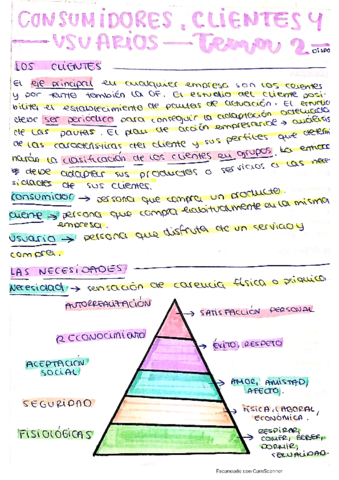 CONSUMIDORES, CLIENTES Y
USUARIOS — Tema 2
LOS CLIENTES
El eje principal en cualquier empresa son los clientes
y por tanto también la OF. El estudio del cliente posi-
bilita el establecimiento de pautas de actuación. El estudio
debe ser periódico para conseguir la adaptación
de las pautas. El plan de acción empresarial → análisis
de las características del cliente y sus perfiles que determi
narán la clasificación de los clientes en grupos. La empresa
debe adaptar sus productos o servicios a las nece-
sidades de sus clientes.
Consumidor → persona que compra un producto.
Cliente → persona que compra habitualmente en la misma
empresa.
Usuario → persona que disfruta de un servicio y
compra.
LAS NECESIDADES
Necesidad → sensación de carencia física o psíquica
AUTORREALIZACIÓN → SATISFACCIÓN PERSONAL
RECONOCIMIENTO → ÉXITO, RESPETO
ACEPTACIÓN
SOCIAL → AMOR, AMISTAD,
AFECTO.
SEGURIDAD → FÍSICA, LABORAL,
ECONÓMICA.
FISIOLÓGICAS → RESPIRAR,
COMER, BEBER,
DORMIR,
SEXUALIDAD.
Escaneado con CamScanner